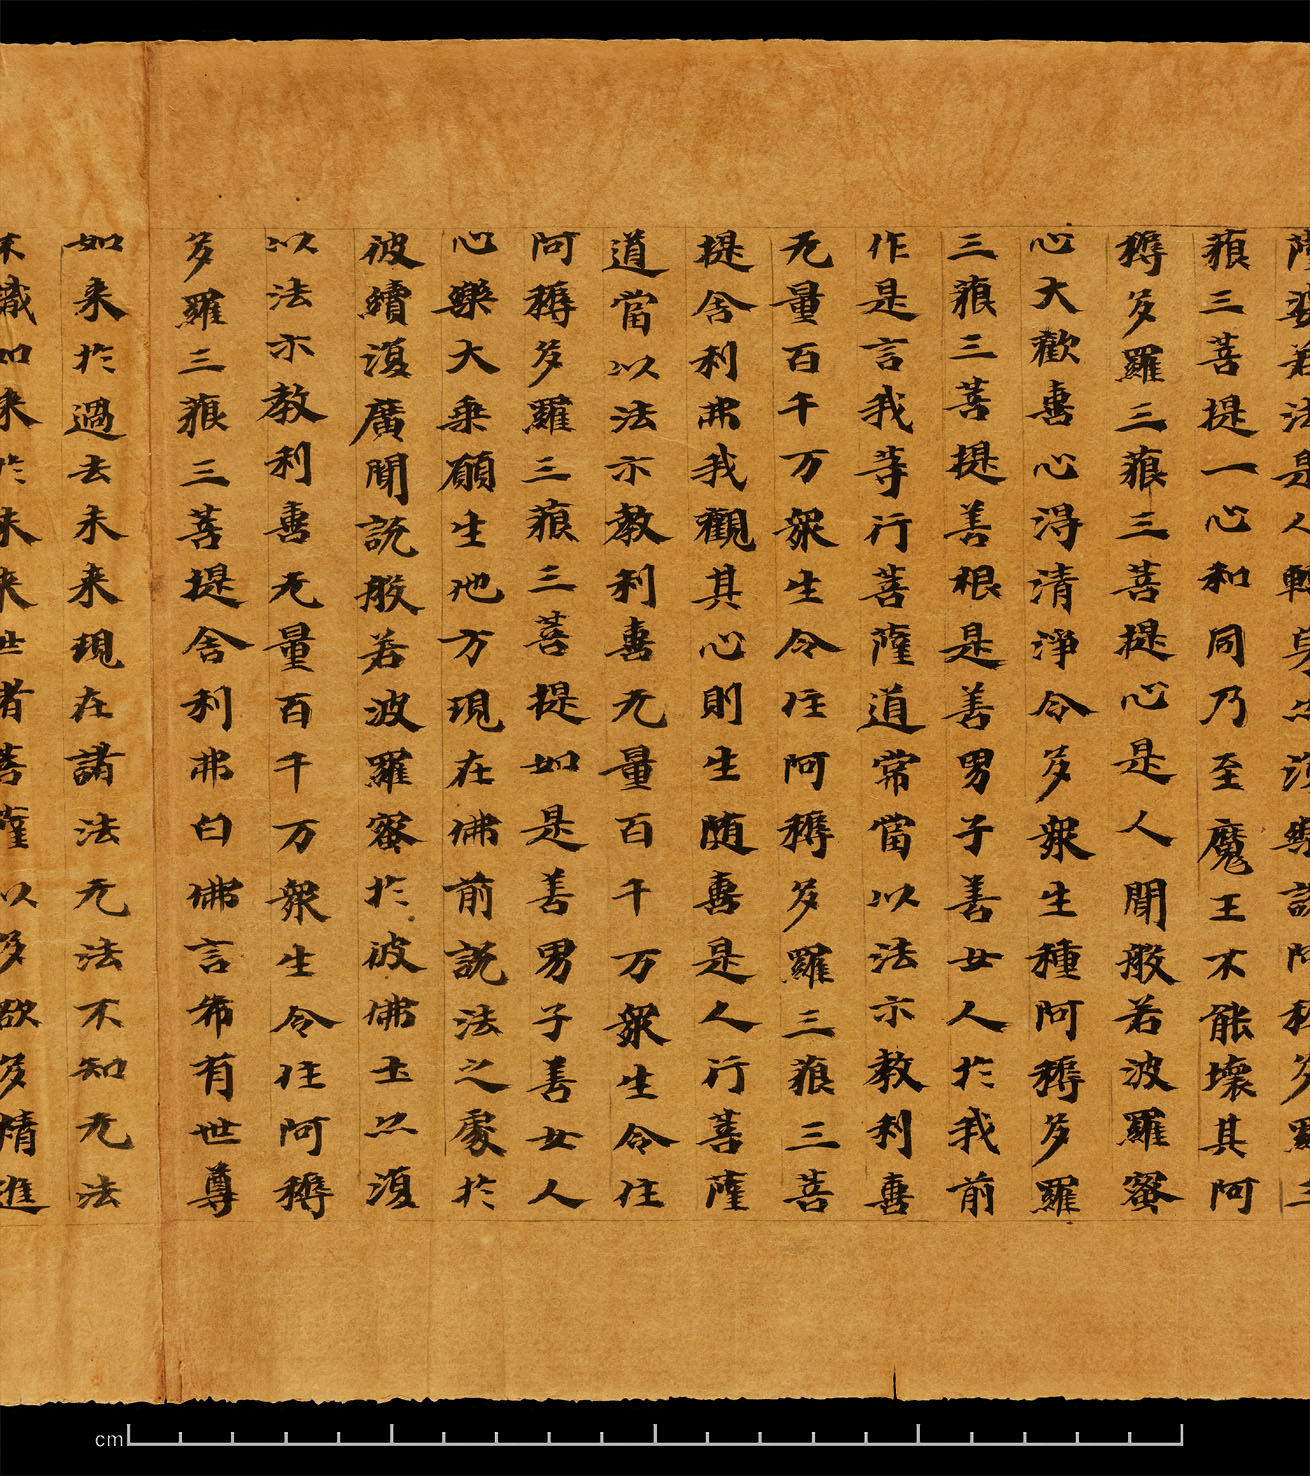 薩婆若法是人轉身亦復樂說阿耨多羅三
藐三菩提一心和同乃至魔王不能壞其阿
耨多羅三藐三菩提心是人聞般若波羅蜜
心大歡喜心得清淨令多衆生種阿耨多羅
三藐三菩提善根是善男子善女人於我前
作是言我等行菩薩道常當以法示教利喜
无量百千万衆生令住阿耨多羅三藐三菩
提舍利弗我觀其心則生随喜是人行菩薩
道當以法示教利喜无量百千万衆生令住
阿耨多羅三藐三菩提如是善男子善女人
心樂大乘願生他方現在佛前說法之處於
彼續復廣聞說般若波羅蜜於彼佛土亦復
以法示教利喜无量百千万衆生令住阿耨
多羅三藐三菩提舍利弗白佛言希有世尊
如来於過去未来現在諸法无法不知无法
不識如来於未来世諸菩薩以多欲多精進
cm